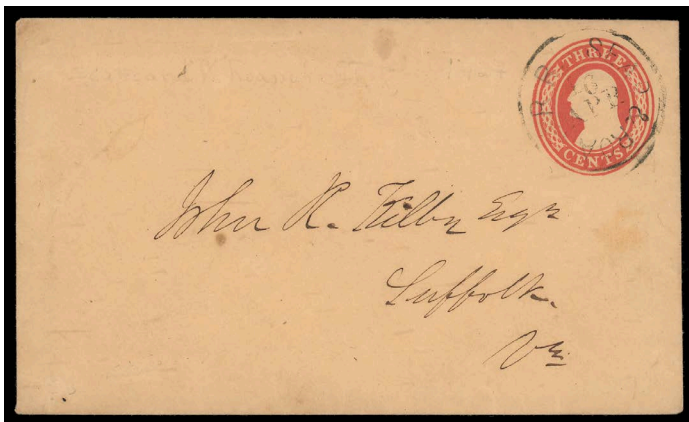 THREE
CENTS
John R. Kilby Esqr
Suffolk.
Va.